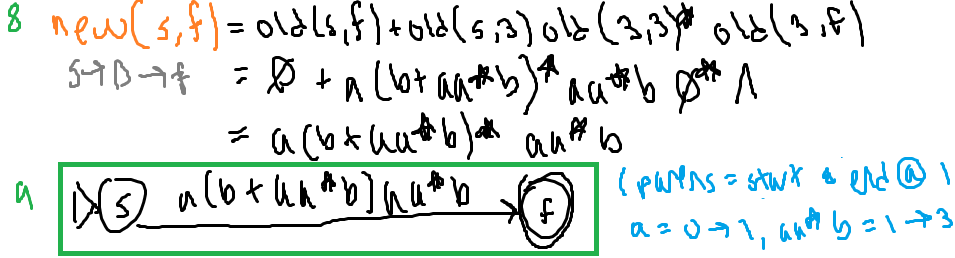 8 new(s,f) = old(s,f) + old(s,3) old(3,3)* old(3,f)
s→D→f = ∅ + a(b+aa*b)* aa*b ∅* Λ
= a(b+aa*b)* aa*b
9 s a(b+aa*b)aa*b f
(parens = start & end @ 1
a = 0→1, aa*b = 1→3